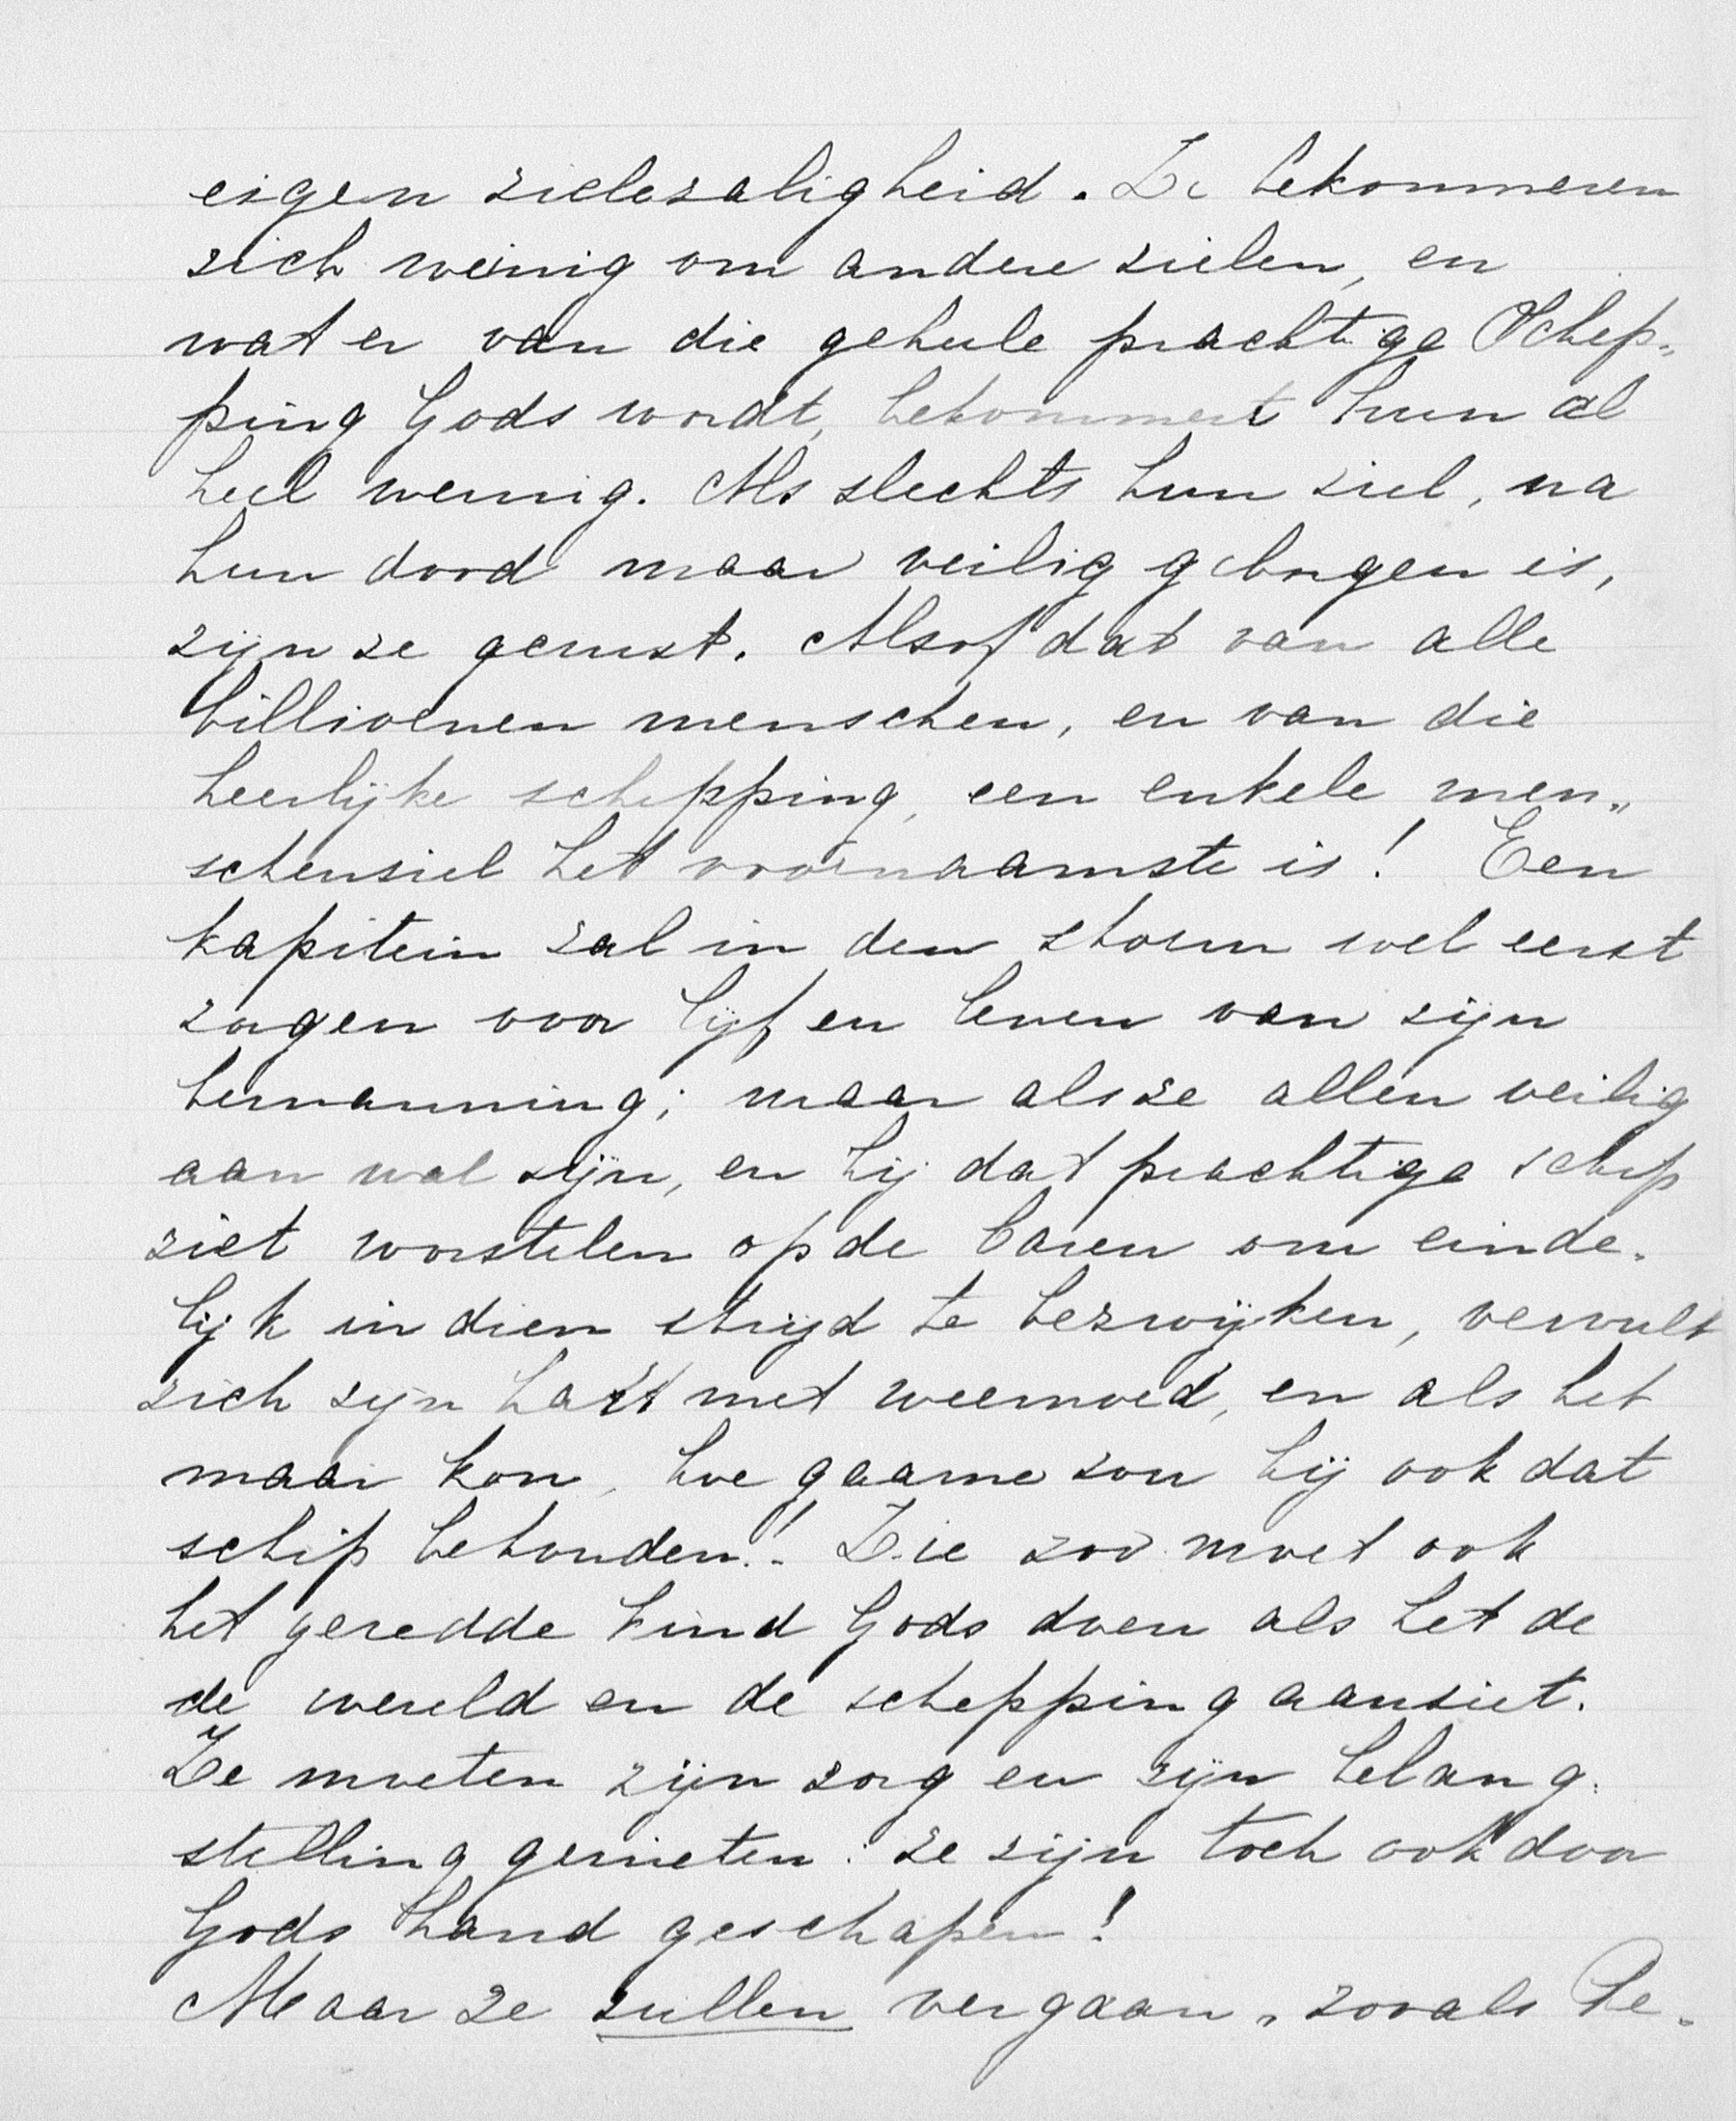 eigen zielezaligheid. Ze bekommeren
zich weinig om andere zielen, en
wat er van die geheele prachtige Schep-
ping Gods wordt, bekommert hun al
heel weinig. Als slechts hun ziel, na
hun dood maar veilig geborgen is,
zijn ze gerust. Alsof dat van alle
billioenen menschen, en van die
heerlijke schepping, een enkele men-
schenziel het voornaamste is! Een
kapitein zal in den storm wel eerst
zorgen voor lijf en leven van zijn
bemanning; maar als ze allen veilig
aan wal zijn, en hij dat prachtige schip
ziet worstelen op de baren om einde-
lijk in dien strijd te bezwijken, vervult
zich zijn hart met weemoed, en als het
maar kon, hoe gaarne zou hij ook dat
schip behouden! Zie zoo moet ook
het geredde kind Gods doen als het de
de wereld en de schepping aanziet.
Ze moeten zijn zorg en zijn belang-
stelling genieten: ze zijn toch ook door
Gods hand geschapen!
Maar ze zullen vergaan, zooals Pe-